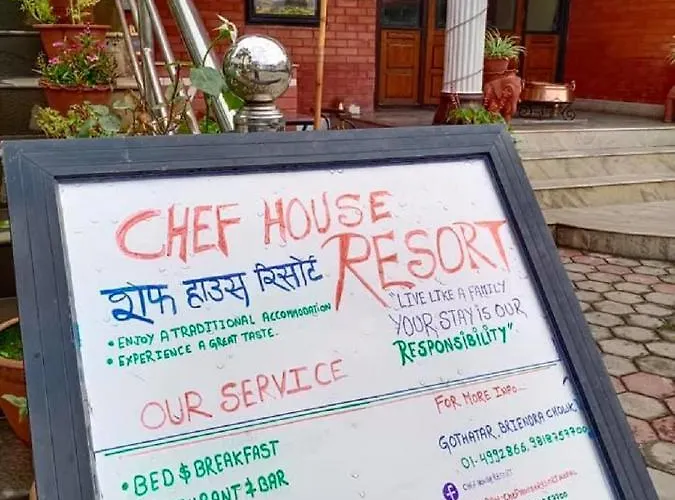 CHEF HOUSE
RESORT
शेफ हाउस रिसोर्ट
• ENJOY A TRADITIONAL ACCOMMODATION
• EXPERIENCE A GREAT TASTE.
"LIVE LIKE A FAMILY
YOUR STAY IS OUR
RESPONSIBILITY"
OUR SERVICE
• BED $ BREAKFAST
& BAR
FOR MORE INFO...
GOTHATAR, BRIENDRA CHOWK
01-4992866, 9818757700